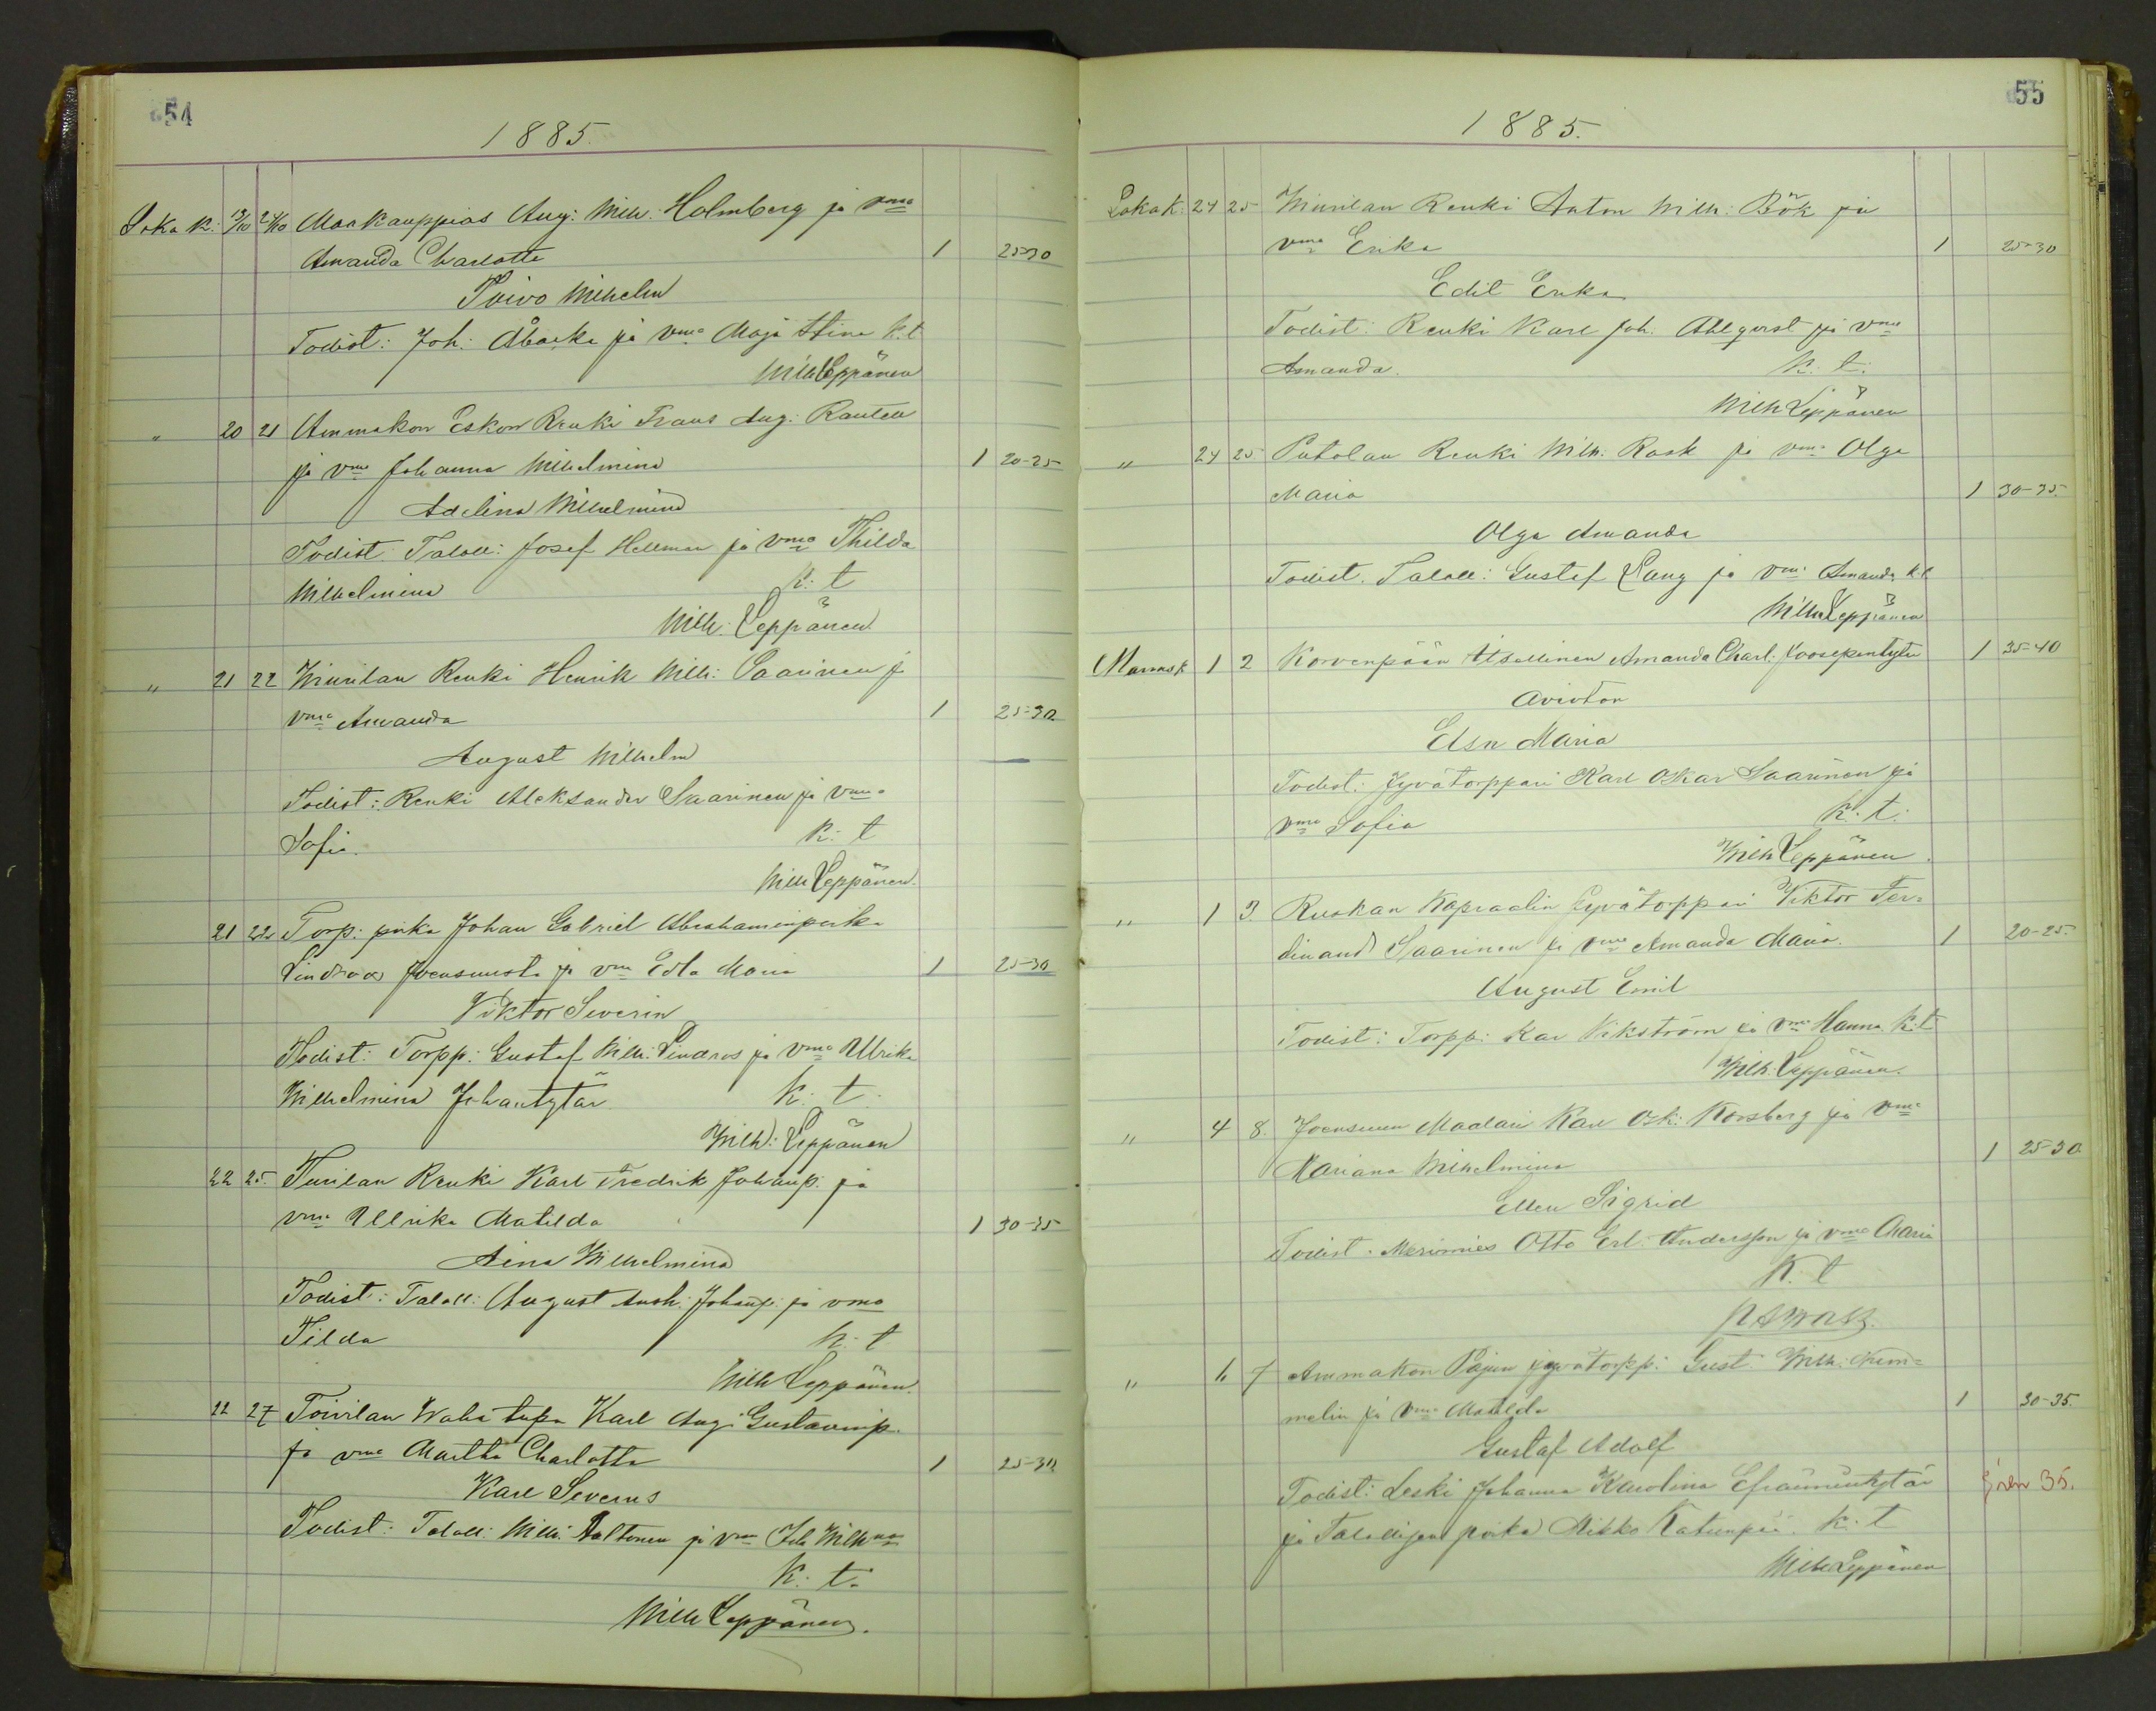 54
1885.
Loka k: 19/10 21/10 Maakauppias Aug: Wilh: Holmberg ja vmo
Amanda Charlotta 1 25-30
Toivo Wilhelm
Todist: Joh: ja vmo Maja Stina k.t
Wilh Leppänen
" 20 21 Ammakon Eskon Renki Frans Aug: Rautell
ja vmo Johanna Wilhelmina 1 20-25
Adelina Wilhelmina
Todist: Taloll: Josef Hellman ja vmo Thilda
Wilhelmina k: t
Wilh: Leppänen
" 21 22 Renki Henrik Wilh: Saarinen j
vmo Amanda 1 25-30
August Wilhelm
Todist: Renki Aleksander Saarinen ja vmo
Sofia. k: t
Wilh Leppänen
21 22 Torp: poika Johan Gabriel Abrahaminpoika
Lindroos Joensuusta ja vm Edla Maria 1 25-30
Viktor Severin
Todist: Torpp: Gustaf Wilh: Lindros ja vmo Ullrika
Wilhelmina Johantytär k: t
Wilh: Leppänen
22 25. Renki Karl Fredrik Johanp: ja
vmo Ullrika Matilda 1 30-35
Aina Wilhelmina
Todist: Taloll: August Johanp: ja vmo
Tilda k: t
Wilh Leppänen
22 27 Toivilan Karl Aug: Gustavinp.
ja vmo Martha Charlotta 1 25-30
Karl Severus
Todist: Taloll: Wilh: Aaltonen ja vm Ida
k: t.
Wilh Leppänen.
55
1885.
Lokak: 24 25 Renki Anton Wilh: Bök ja
vmo Erika 1 25-30
Edit Erika
Todist: Renki Karl Joh. Ahlqvist ja vmo
Amanda. k: t:
Wilh Leppänen
" 24 25 Putolan Renki Wilh: Rask ja vmo Olga
Maria 1 30-35.
Olga Amanda
Todist. Taloll: Gustaf Lang ja vmo Amanda k.t
Wilh Leppänen
Marrask 1 2 Korvenpään Itsellinen Amanda Charl: Joosepentytär 1 35-40
avioton
Elsa Maria
Todist: Jyvätorppari Karl Oskar Saarinen ja
vmo Sofia k: t:
Wilh Leppänen
" 1 3. Ruokan Kapraalin Jyvätorppari Viktor Fer=
dinand Saarinen ja vmo Amanda Maria. 1 20-25.
August Emil
Todist: Torpp: Kar Vikström ja vmo Hanna k:t
Wilh: Leppänen.
" 4 8. Joensuun Maalari Karl Osk: Korsberg ja vmo
Mariana Wilhelmina 1 25-30
Ellen Sigrid
Todist. Merimies Otto Erl. Andersson ja vmo Maria
k. t
" 6 7 Ammakon Pajun jyvätorpp: Gust. Wilh: Num=
melin ja vmo Matilda 1 30-35.
Gustaf Adolf
Todist: Leski Johanna Karolina Efraimintytär 35.
ja Talollisen poika Mikko k: t
Wilh Leppänen